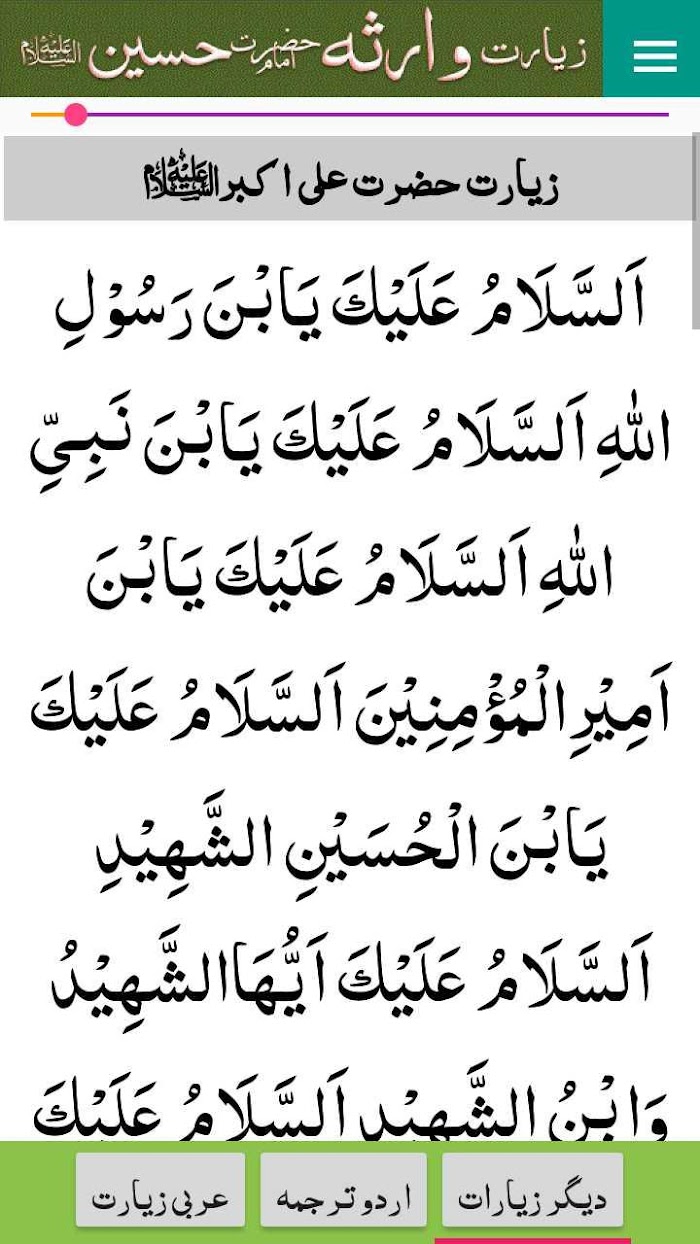 زیارت وارثہ حضرت امام حسین علیہ السلام
زیارت حضرت علی اکبر علیہ السلام
اَلسَّلَامُ عَلَيْكَ يَابْنَ رَسُوْلِ
اللهِ اَلسَّلَامُ عَلَيْكَ يَابْنَ نَبِيِّ
اللهِ اَلسَّلَامُ عَلَيْكَ يَابْنَ
اَمِيْرِالْمُؤْمِنِيْنَ اَلسَّلَامُ عَلَيْكَ
يَابْنَ الْحُسَيْنِ الشَّهِيْدِ
اَلسَّلَامُ عَلَيْكَ اَيُّهَاالشَّهِيْدُ
وَابْنُ الشَّهِيْدِ اَلسَّلَامُ عَلَيْكَ
دیگر زیارات
اردو ترجمہ
عربی زیارت